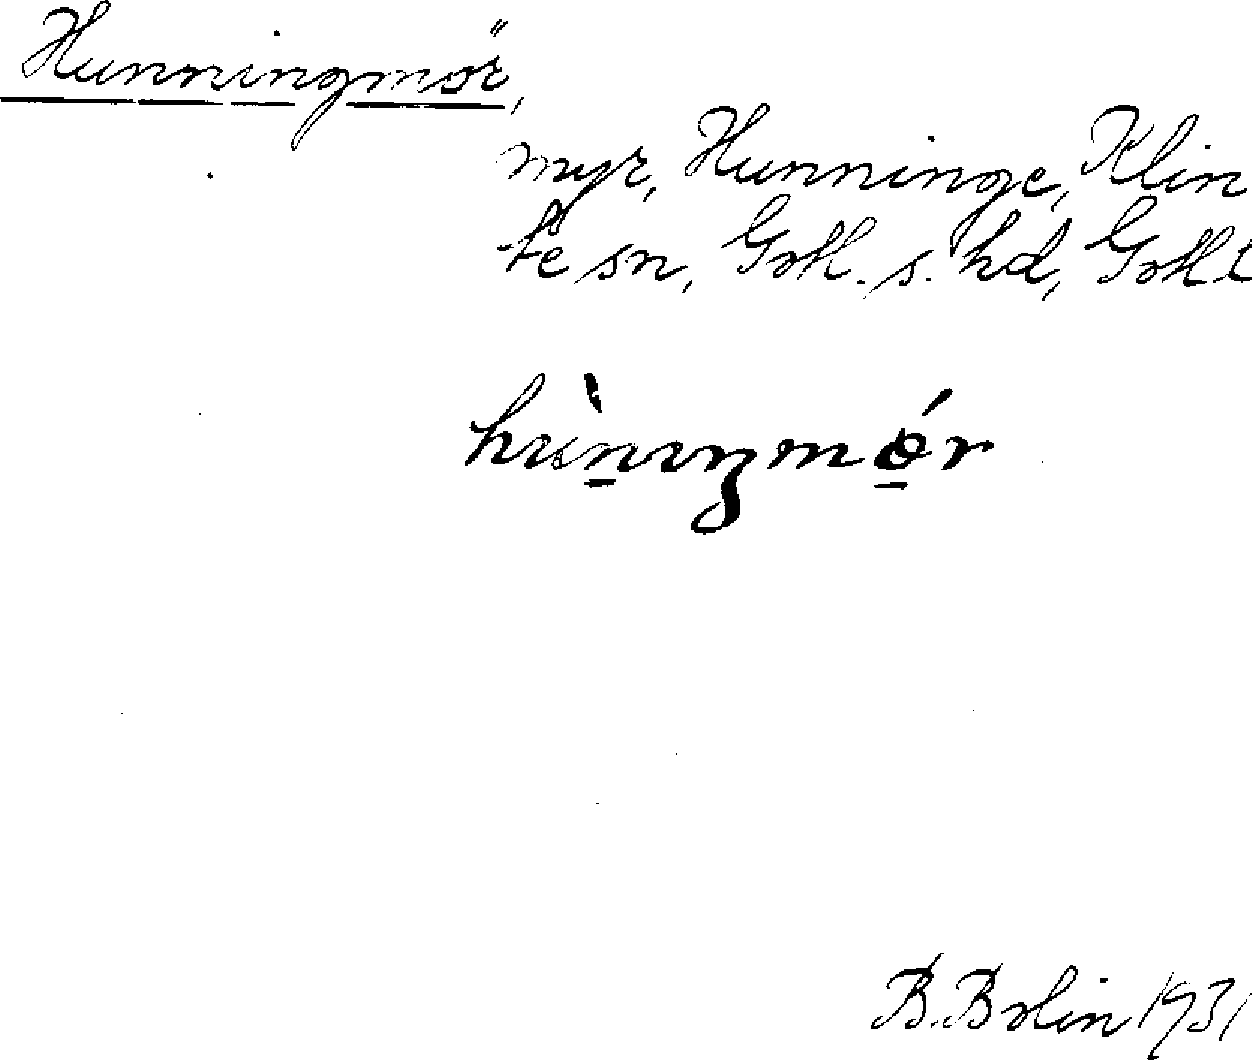 Hunningmör,
myr, Hunninge, Klin
te sn, Gotl. s. hd, Gotl
B. Bolin 1931